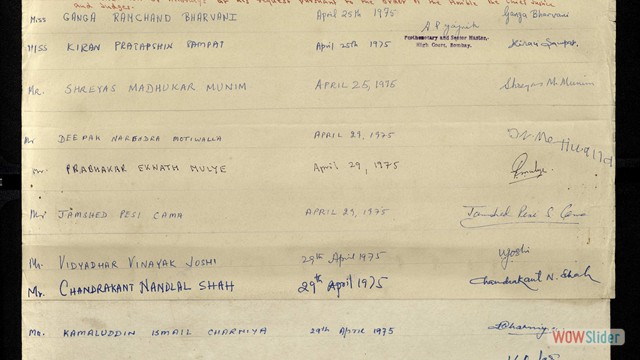 of Attorneys at his request pursuant to the order of the Honble the Chief Justice
and Judges.
Miss GANGA RAMCHAND BHARVANI April 25th 1975 Ganga Bharvani
Prothonotary and Senior Master,
High Court, Bombay.
Miss KIRAN PRATAPSHIN SAMPAT April 25th 1975 Kiran Sampat
Mr. SHREYAS MADHUKAR MUNIM APRIL 25, 1975 Shreyas M. Munim
Mr DEEPAK NARBADRA MOTIWALLA APRIL 29, 1975
Mr. PRABHAKAR EKNATH MULYE April 29, 1975
Mr JAMSHED PESI CAMA APRIL 29, 1975 Jamshed Pesi S Cama
Mr. VIDYADHAR VINAYAK JOSHI 29th April 1975 Joshi
Mr. CHANDRAKANT NANDLAL SHAH 29th April 1975 Chandrakant N. Shah
Mr. KAMALUDDIN ISMAIL CHARNIYA 29th APRIL 1975
WOWSlider